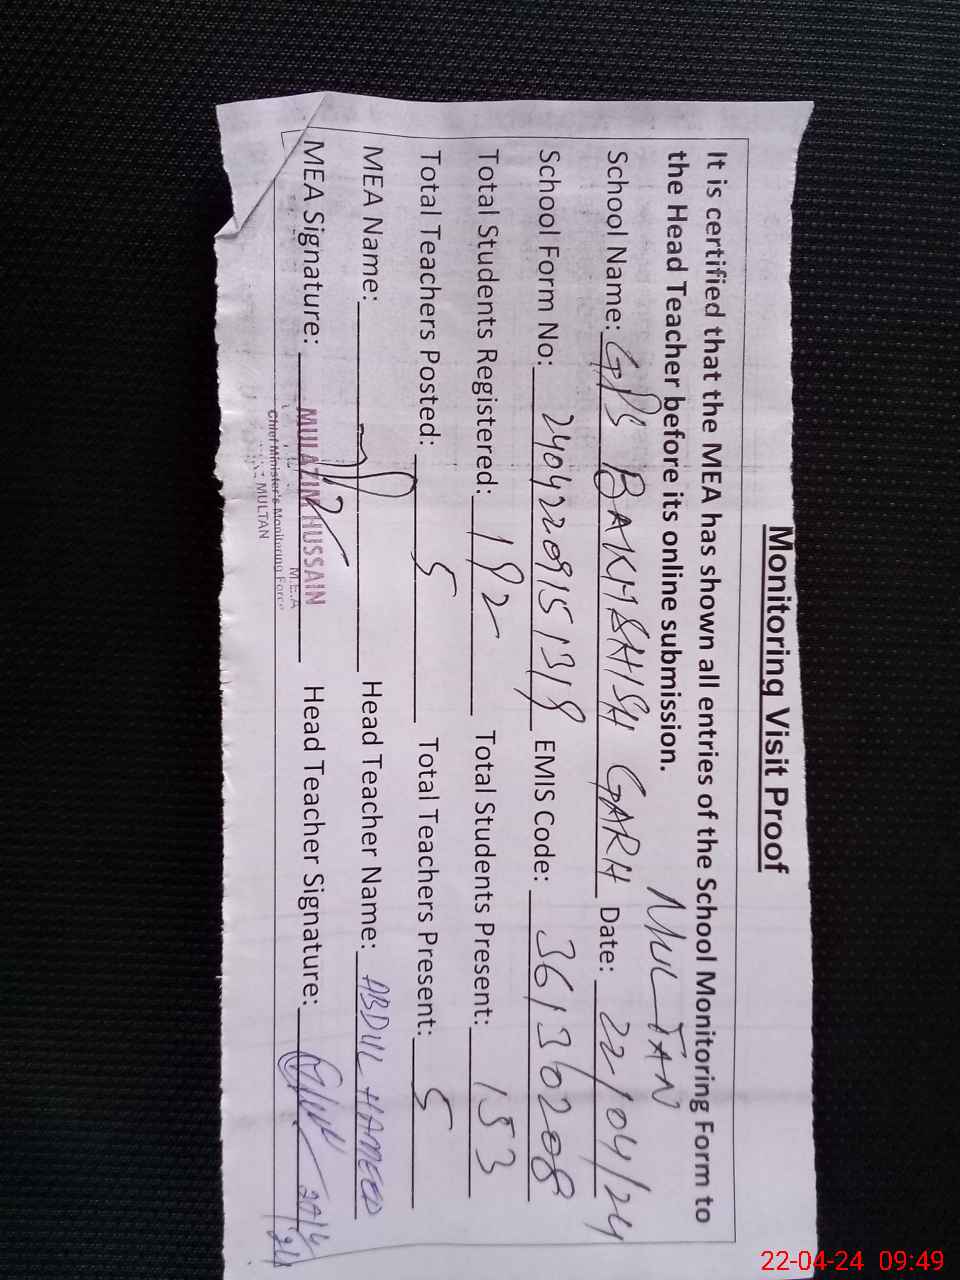 Monitoring Visit Proof
It is certified that the MEA has shown all entries of the School Monitoring Form to
the Head Teacher before its online submission.
MULTAN
School Name: GPS BAKHSHISH GARH Date: 22/04/24
School Form No: 24042209151318 EMIS Code: 36136208
Total Students Registered: 192 Total Students Present: 153
Total Teachers Posted: 5 Total Teachers Present: 5
MEA Name: Head Teacher Name: ABDUL HAMEED
MEA Signature: MULAZIM HUSSAIN Head Teacher Signature:
M.E.A
Chief Minister's Monitoring Force
MULTAN
22-04-24 09:49